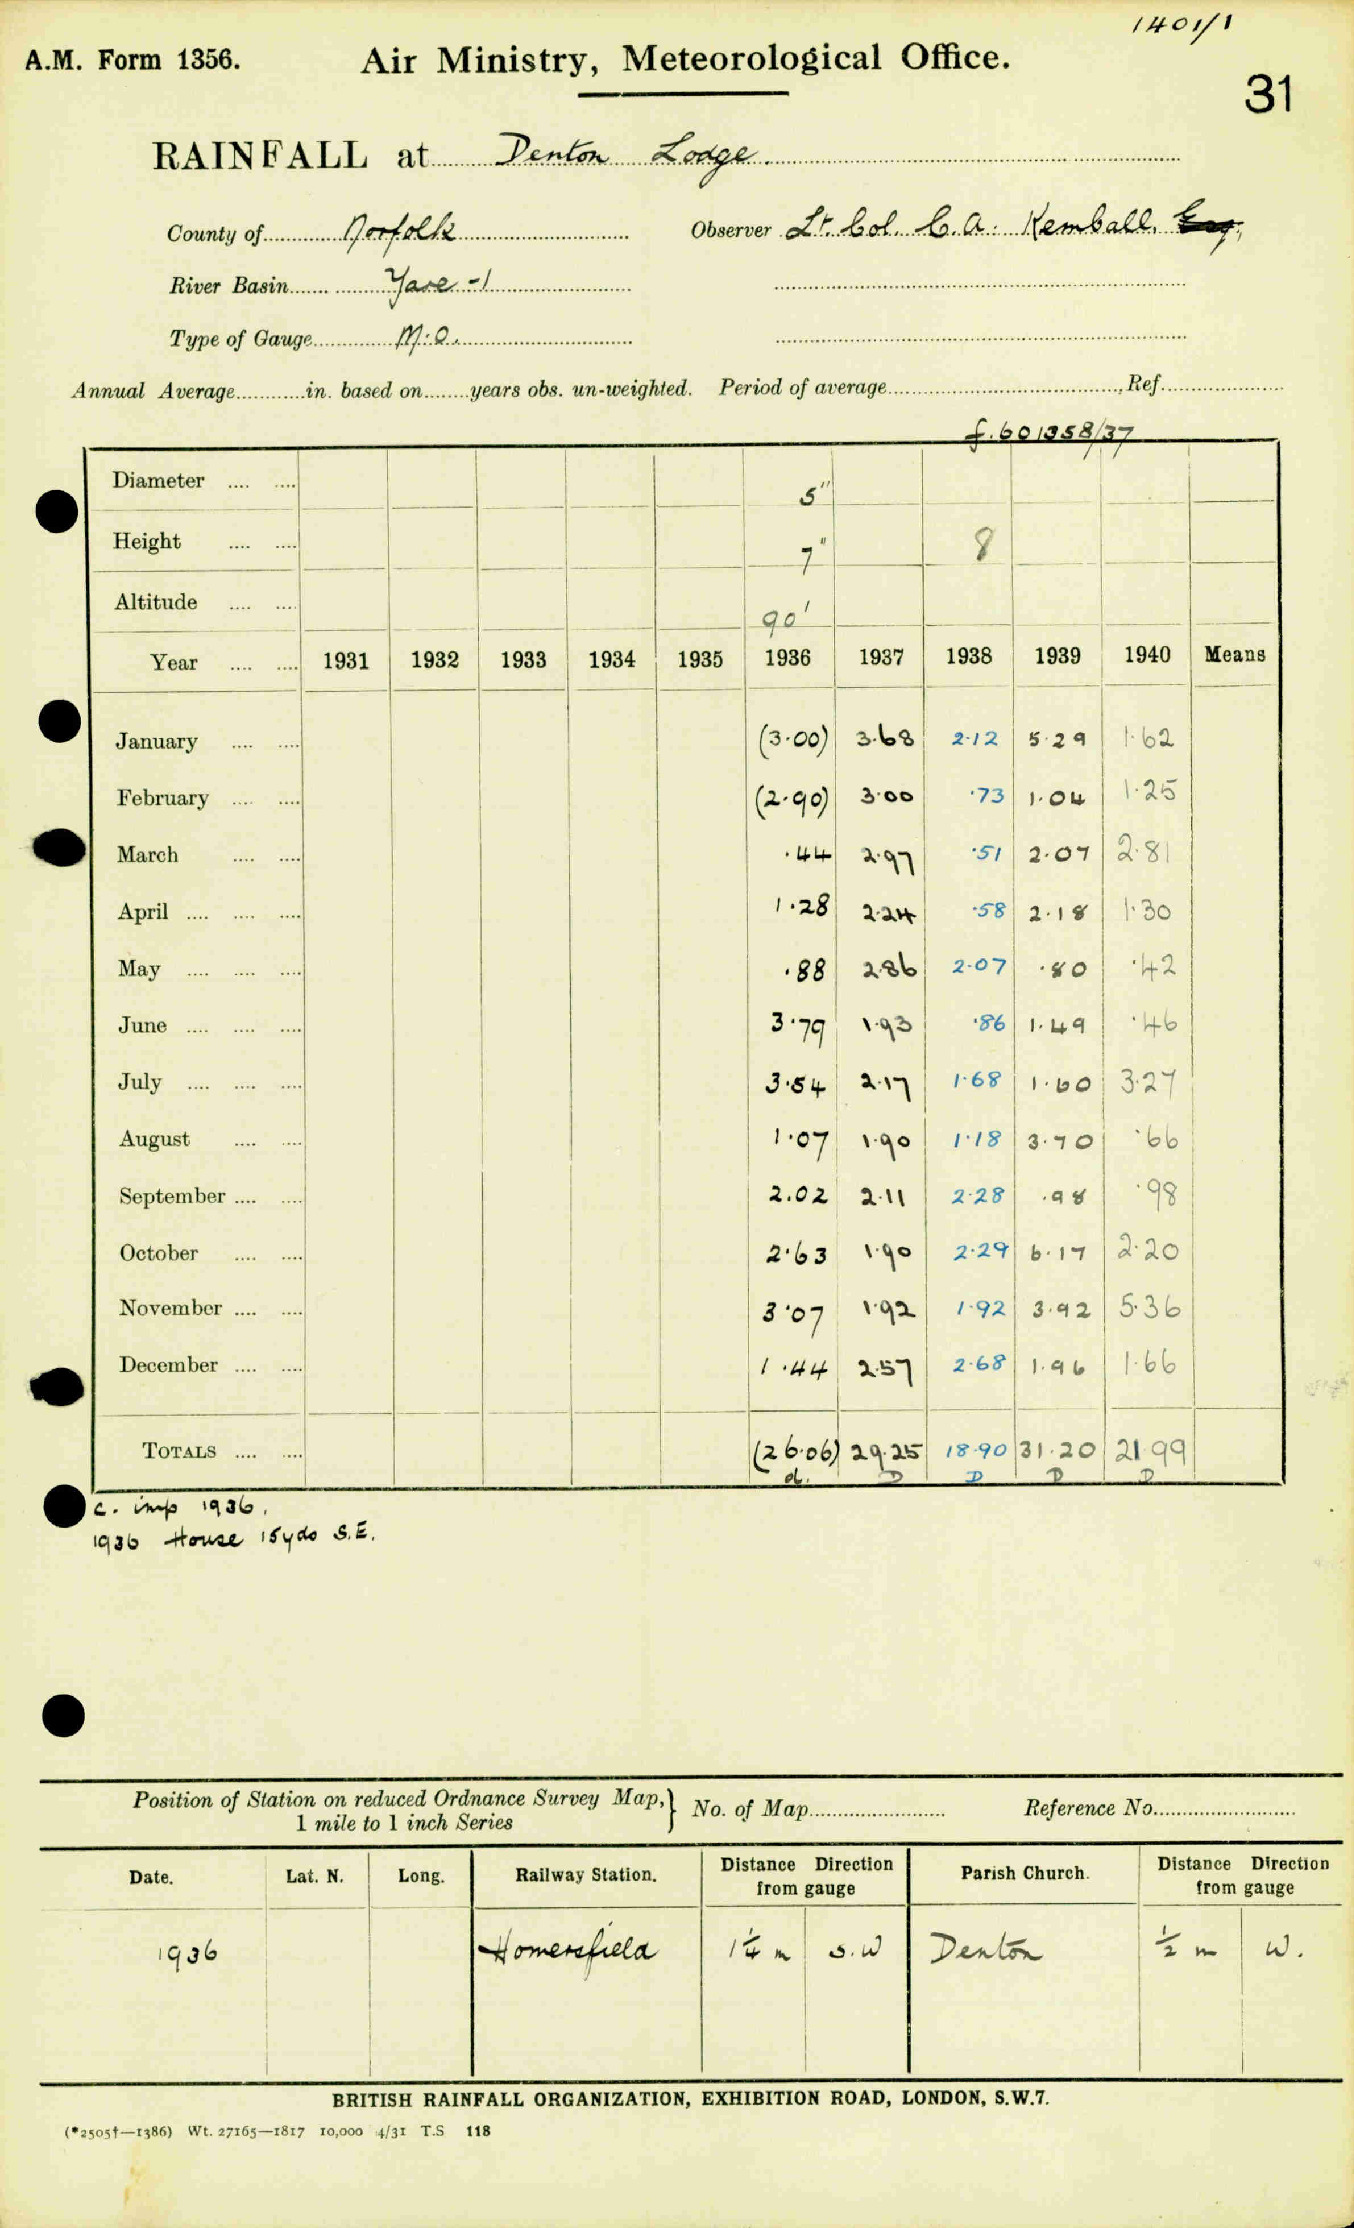 1401/1
A.M. Form 1356.
Air Ministry, Meteorological Office.
31
RAINFALL at Denton Lodge.
County of Norfolk Observer Lt. Col. C.A. Kemball, Esq.,
River Basin Yare -1
Type of Gauge M.O.
Annual Average in. based on years obs. un-weighted. Period of average , Ref.
f. 601358/37
Diameter 5"
Height 7" 8
Altitude 90'
Year 1931 1932 1933 1934 1935 1936 1937 1938 1939 1940 Means
January (3.00) 3.68 2.12 5.29 1.62
February (2.90) 3.00 .73 1.04 1.25
March .44 2.97 .51 2.07 2.81
April 1.28 2.24 .58 2.18 1.30
May .88 2.86 2.07 .80 .42
June 3.79 1.93 .86 1.49 .46
July 3.54 2.17 1.68 1.60 3.27
August 1.07 1.90 1.18 3.70 .66
September 2.02 2.11 2.28 .98 .98
October 2.63 1.90 2.29 6.17 2.20
November 3.07 1.92 1.92 3.92 5.36
December 1.44 2.57 2.68 1.96 1.66
TOTALS (26.06) 29.25 18.90 31.20 21.99
d. D D D D
c. imp 1936.
1936 House 15yds S.E.
Position of Station on reduced Ordnance Survey Map, } No. of Map Reference No.
1 mile to 1 inch Series
Date. Lat. N. Long. Railway Station. Distance Direction from gauge Parish Church. Distance Direction from gauge
1936 Homersfield 1¼ m S.W Denton ½ m W.
BRITISH RAINFALL ORGANIZATION, EXHIBITION ROAD, LONDON, S.W.7.
(*2505†—1386) Wt. 27165—1817 10,000 4/31 T.S 118